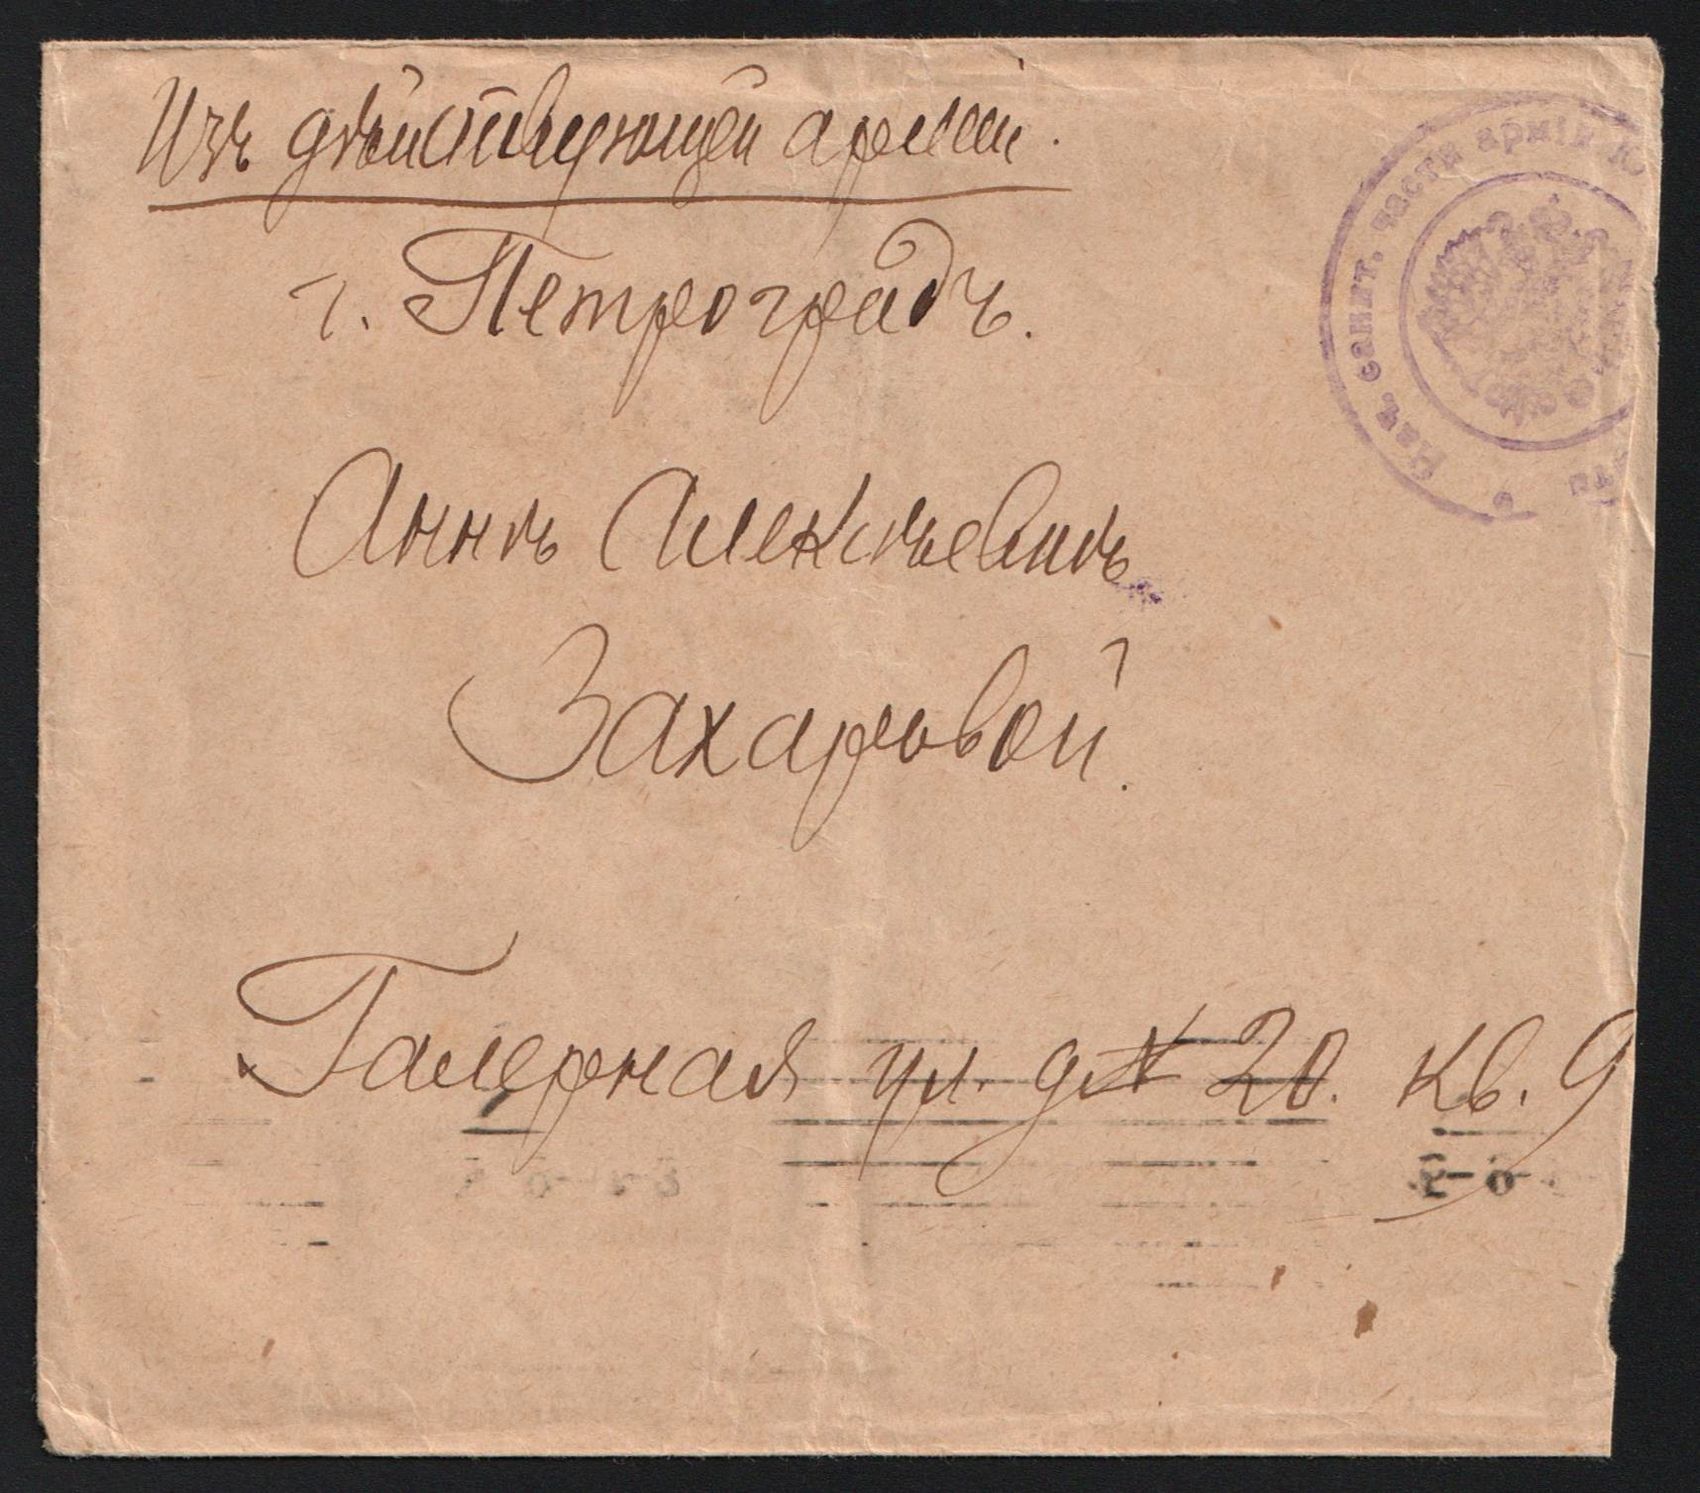 Изъ дѣйствующей арміи.
г. Петроградъ.
Аннѣ Алексѣевнѣ
Захаровой.
Галерная ул. д № 20. кв. 9
Нач. санит. части арміи Ю